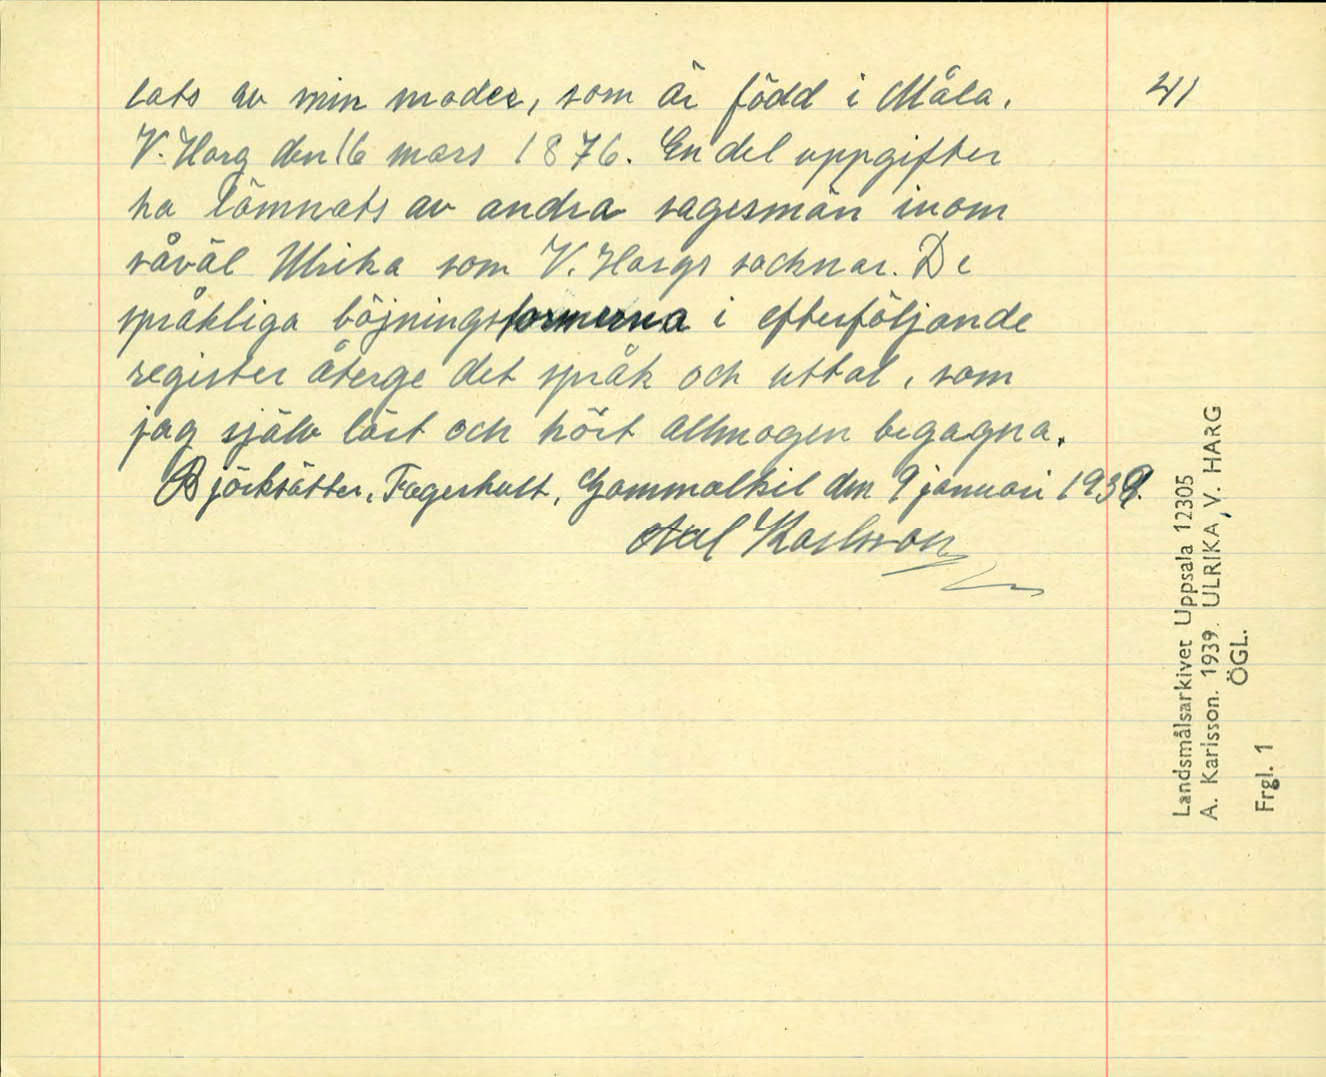 lats av min moder, som är född i Måla,
V. Harg den 16 mars 1876. En del uppgifter
ha lämnats av andra sagesmän inom
såväl Ulrika som V. Hargs socknar. De
språkliga böjningsformerna i efterföljande
register återge det språk och uttal, som
jag själv lärt och hört allmogen begagna.
Björksätter, Fagerhult, Gammalkil den 9 januari 1939.
Axel Karlsson
41
Landsmålsarkivet Uppsala 12305
A. Karlsson. 1939. ULRIKA, V. HARG
ÖGL.
Frgl. 1